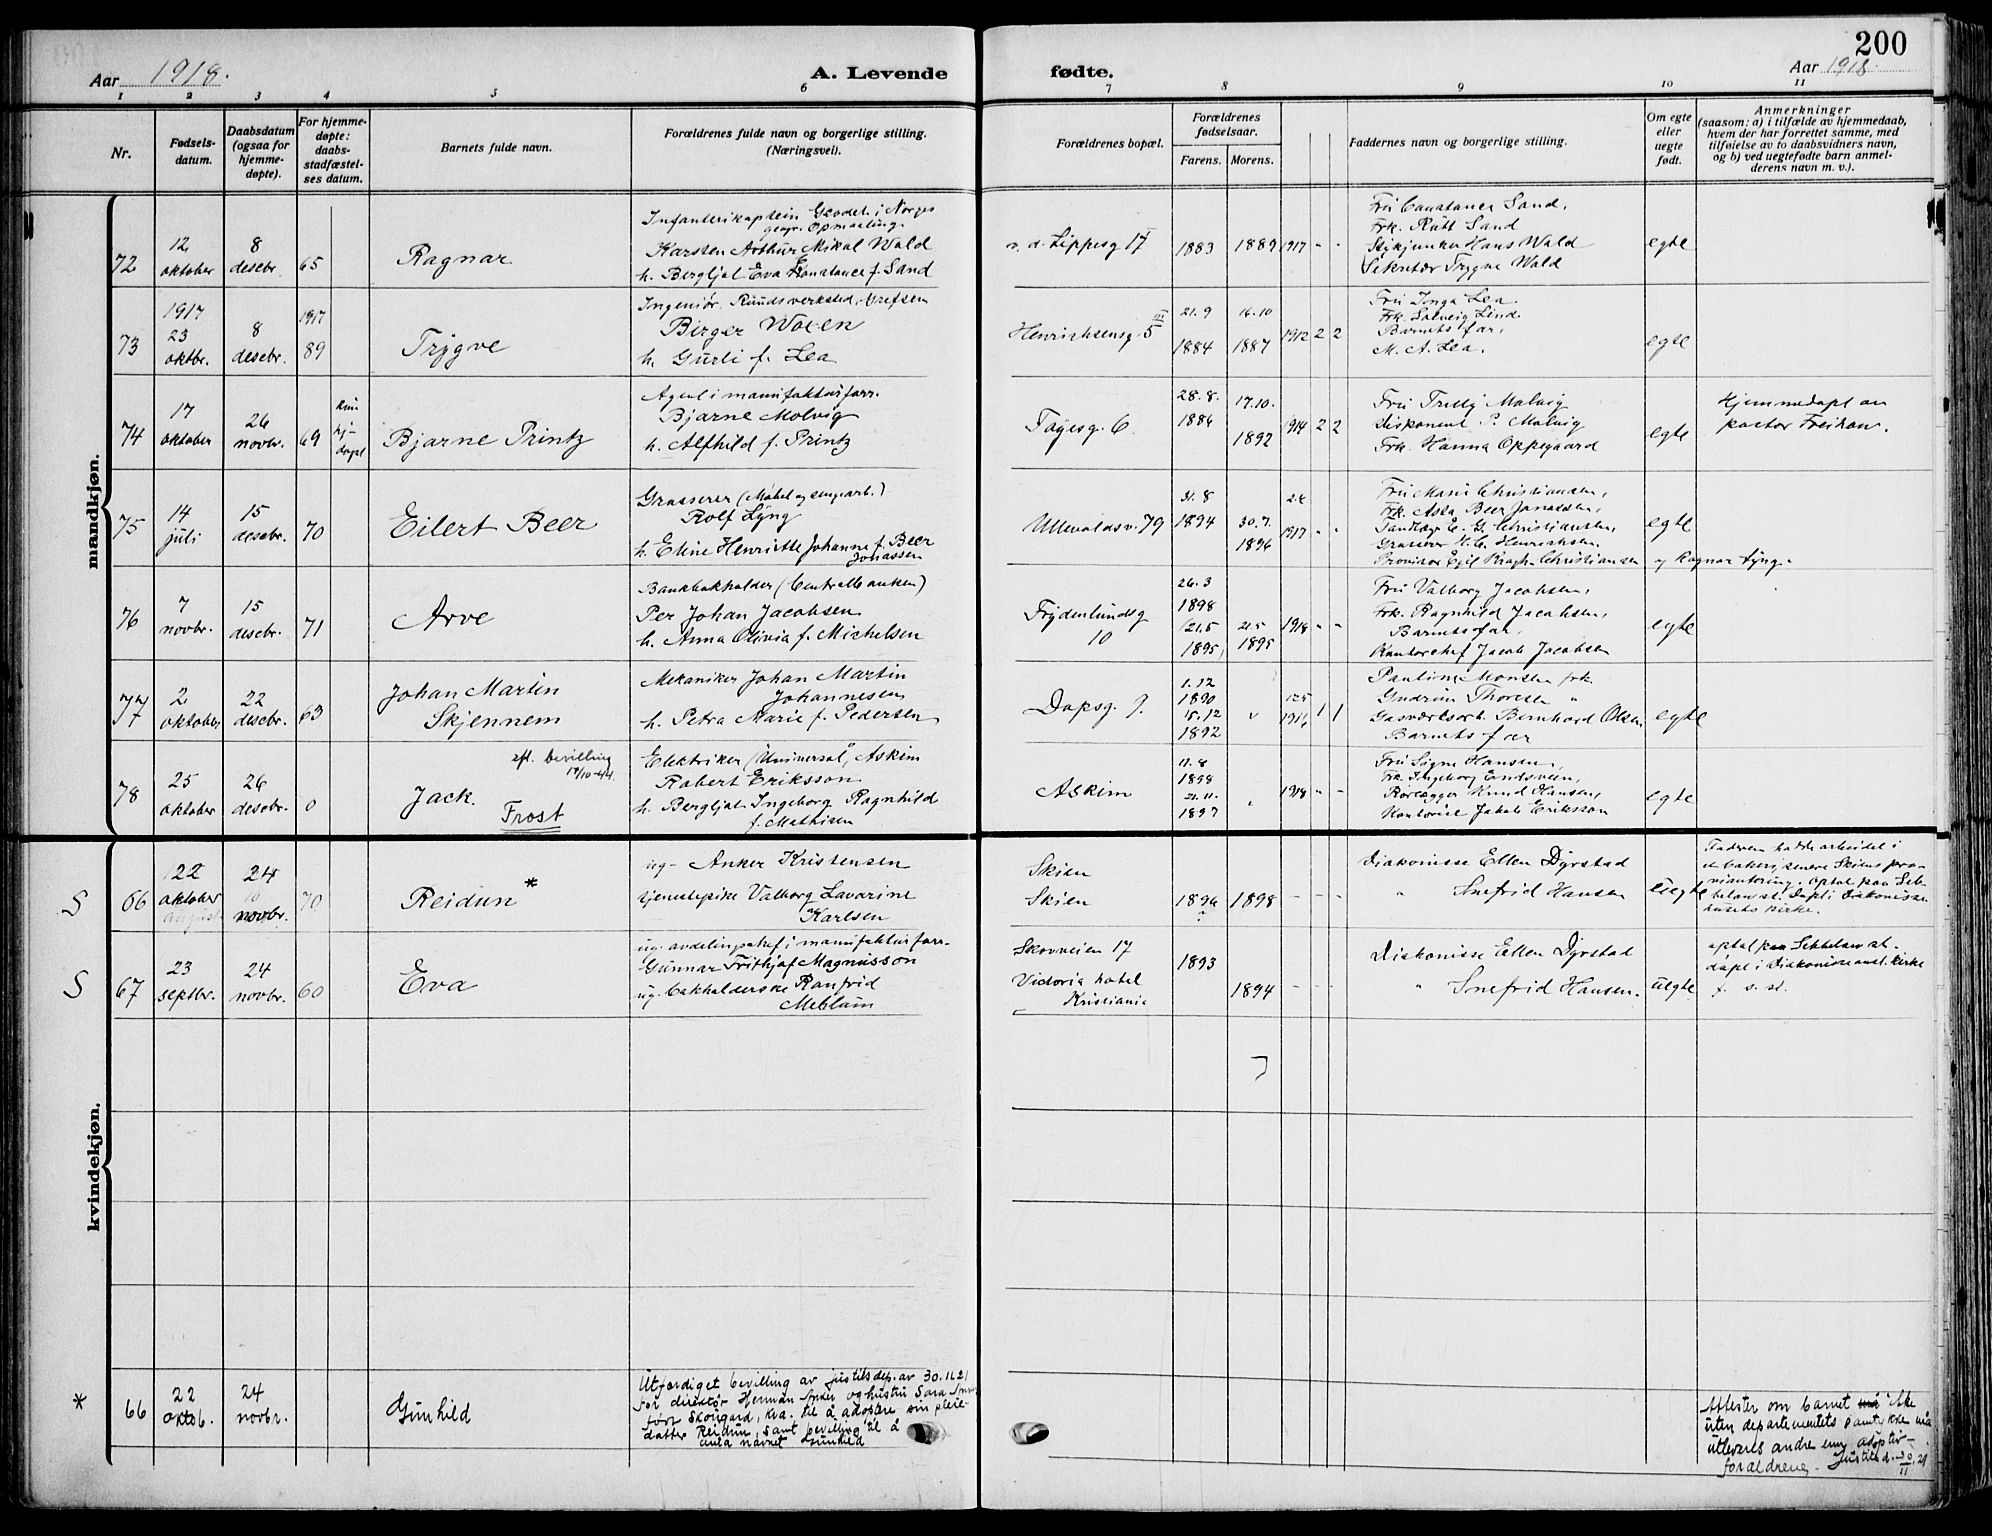 200
Aar 1918.
A. Levende fødte.
Aar 1918.
1 2 3 4 5 6 7 8 9 10 11
Nr.
Fødsels-
datum.
Daabsdatum
(ogsaa for
hjemme-
døpte).
For hjemme-
døpte:
daabs-
stadfæstel-
ses datum.
Barnets fulde navn.
Forældrenes fulde navn og borgerlige stilling.
(Næringsvei).
Forældrenes bopæl.
Forældrenes
fødselsaar.
Farens. Morens.
Faddernes navn og borgerlige stilling.
Om egte
eller
uegte
født.
Anmerkninger
(saasom: a) i tilfælde av hjemmedaab,
hvem der har forrettet samme, med
tilføielse av to daabsvidners navn,
og b) ved uegtefødte barn anmel-
derens navn m. v.).
mandkjøn.
72
12
oktober
8
desebr.
65
Ragnar
Infanterikaptein Geodet i Norges
geogr. Opmaaling
Karsten Arthur Mikal Wald
h. Bergljot Eva Konstance f. Sand
v. d. Lippesg 17
1883 1889 1917 " "
Fru Constance Sand,
Frk. Rutt Sand
Hans Wald
Sekretær Trygve Wald
egte
73
1917
23
oktbr.
8
desebr.
1917
89
Trygve
Ingeniør. Ruuds verksted, Grefsen
Birger Woxen
h. Gurli f. Lea
Henrichsensg. 5 III
21.9
1884
16.10
1887
1912 2 2
Fru Inga Lea
Frk. Solveig Lind.
Barnets far,
M. A. Lea.
egte
74
17
oktober
26
novbr.
69
hj-
døpt
Bjarne Printz
Agent i manufakturforr.
Bjarne Molvig
h. Alfhild f. Printz
Toyesg. 6.
28.8.
1886
17.10.
1892
1914 2 2
Fru Trilly Molvig
Disponent P. Molvig
Frk. Hanna Oppegaard
egte
Hjemmedøpt av
pastor Freihow.
75
14
juli
15
desebr.
70
Eilert Beer
Grosserer (Møbel og sengearb.)
Rolf Lyng
h. Eline Henriette Johanne f. Beer
Jonassen
Ullevoldsv. 79
31.8
1894
30.7.
1896
2.6
1917 " "
Fru Marie Christiansen,
Frk. Asta Beer Jonassen,
Tandlæge E. G. Christiansen,
Grosserer H. C. Henrichsen.
Provisor Egil Kragh Christiansen og Ragnar Lyng.
egte
76
7
novbr.
15
desebr.
71
Arve
Bankbokholder (Centralbanken)
Per Johan Jacobsen
h. Anna Olivia f. Michelsen
Frydenlundsg
10
26.3
1898
(21.5
1895)
21.5
1895
1918 " "
Fru Valborg Jacobsen,
Frk. Ragnhild Jacobsen,
Barnets far,
Kontorchef Jacob Jacobsen
egte
77
2
oktober
22
desebr.
63
Johan Martin
Skjennem
Mekaniker Johan Martin
Johannesen
h. Petra Marie f. Pedersen
Dopsg. 9.
1.12
1890
15.12
1892
"
12.5
1916 1 1
Pauline Monsen frk.
Gudrun Thoresen "
Gasverksarb. Bernhard Olsen
Barnets far
egte
78
25
oktober
26
desebr.
0
Jack.
efl. bevilling
17/10-44.
Frost
Elektriker ("Universal", Askim
Robert Eriksson
h. Bergljot Ingeborg Ragnhild
f. Mathisen
Askim
11.8
1898
21.11.
1897
"
1918 " "
Fru Signe Hansen,
Frk. Ingeborg Endsveen,
Rørlægger Knud Hansen,
Jakob Eriksson
egte
kvindekjøn.
S
66
22
oktober
august
24
10
novbr.
70
Reidun *
ug- Anker Kristensen
tjenestepike Valborg Lavarine
Karlsen
Skien
Skien
1896
?
1898
- - -
Diakonisse Ellen Dyrstad
" Snefrid Hansen
uegte
Faderen hadde arbeidet i
et bakeri, senere Skiens pro-
viantering. Optat paa Seb-
belows st. Døpt i Diakonisse-
husets kirke.
S
67
23
septbr.
24
novbr.
60
Eva
ug. avdelingschef i manufakturforr.
Gunnar Frithjof Magnusson
ug. bokholderske Ranfrid
Meblum
Skovveien 17
Victoria hotel
Kristiania
1893
1894
- - -
Diakonisse Ellen Dyrstad
" Snefrid Hansen.
uegte
optat paa Sebbelows st.
døpt i Diakonisseanst. kirke
f. s. st.
*
66
22
oktob.
24
novbr.
Gunhild
Utfærdiget bevilling av justitsdep. av 30.11.21
for direktør Herman Anker og hustru Sara Anker
født Skougaard, Kra. til å adoptere sin pleie-
datter Reidun, samt bevilling til å
anta navnet Gunhild
Attester om barnet må ikke
uten departementets samtykke
utleveres andre enn adoptiv-
foreldrene. Justitsd. 30/11.21